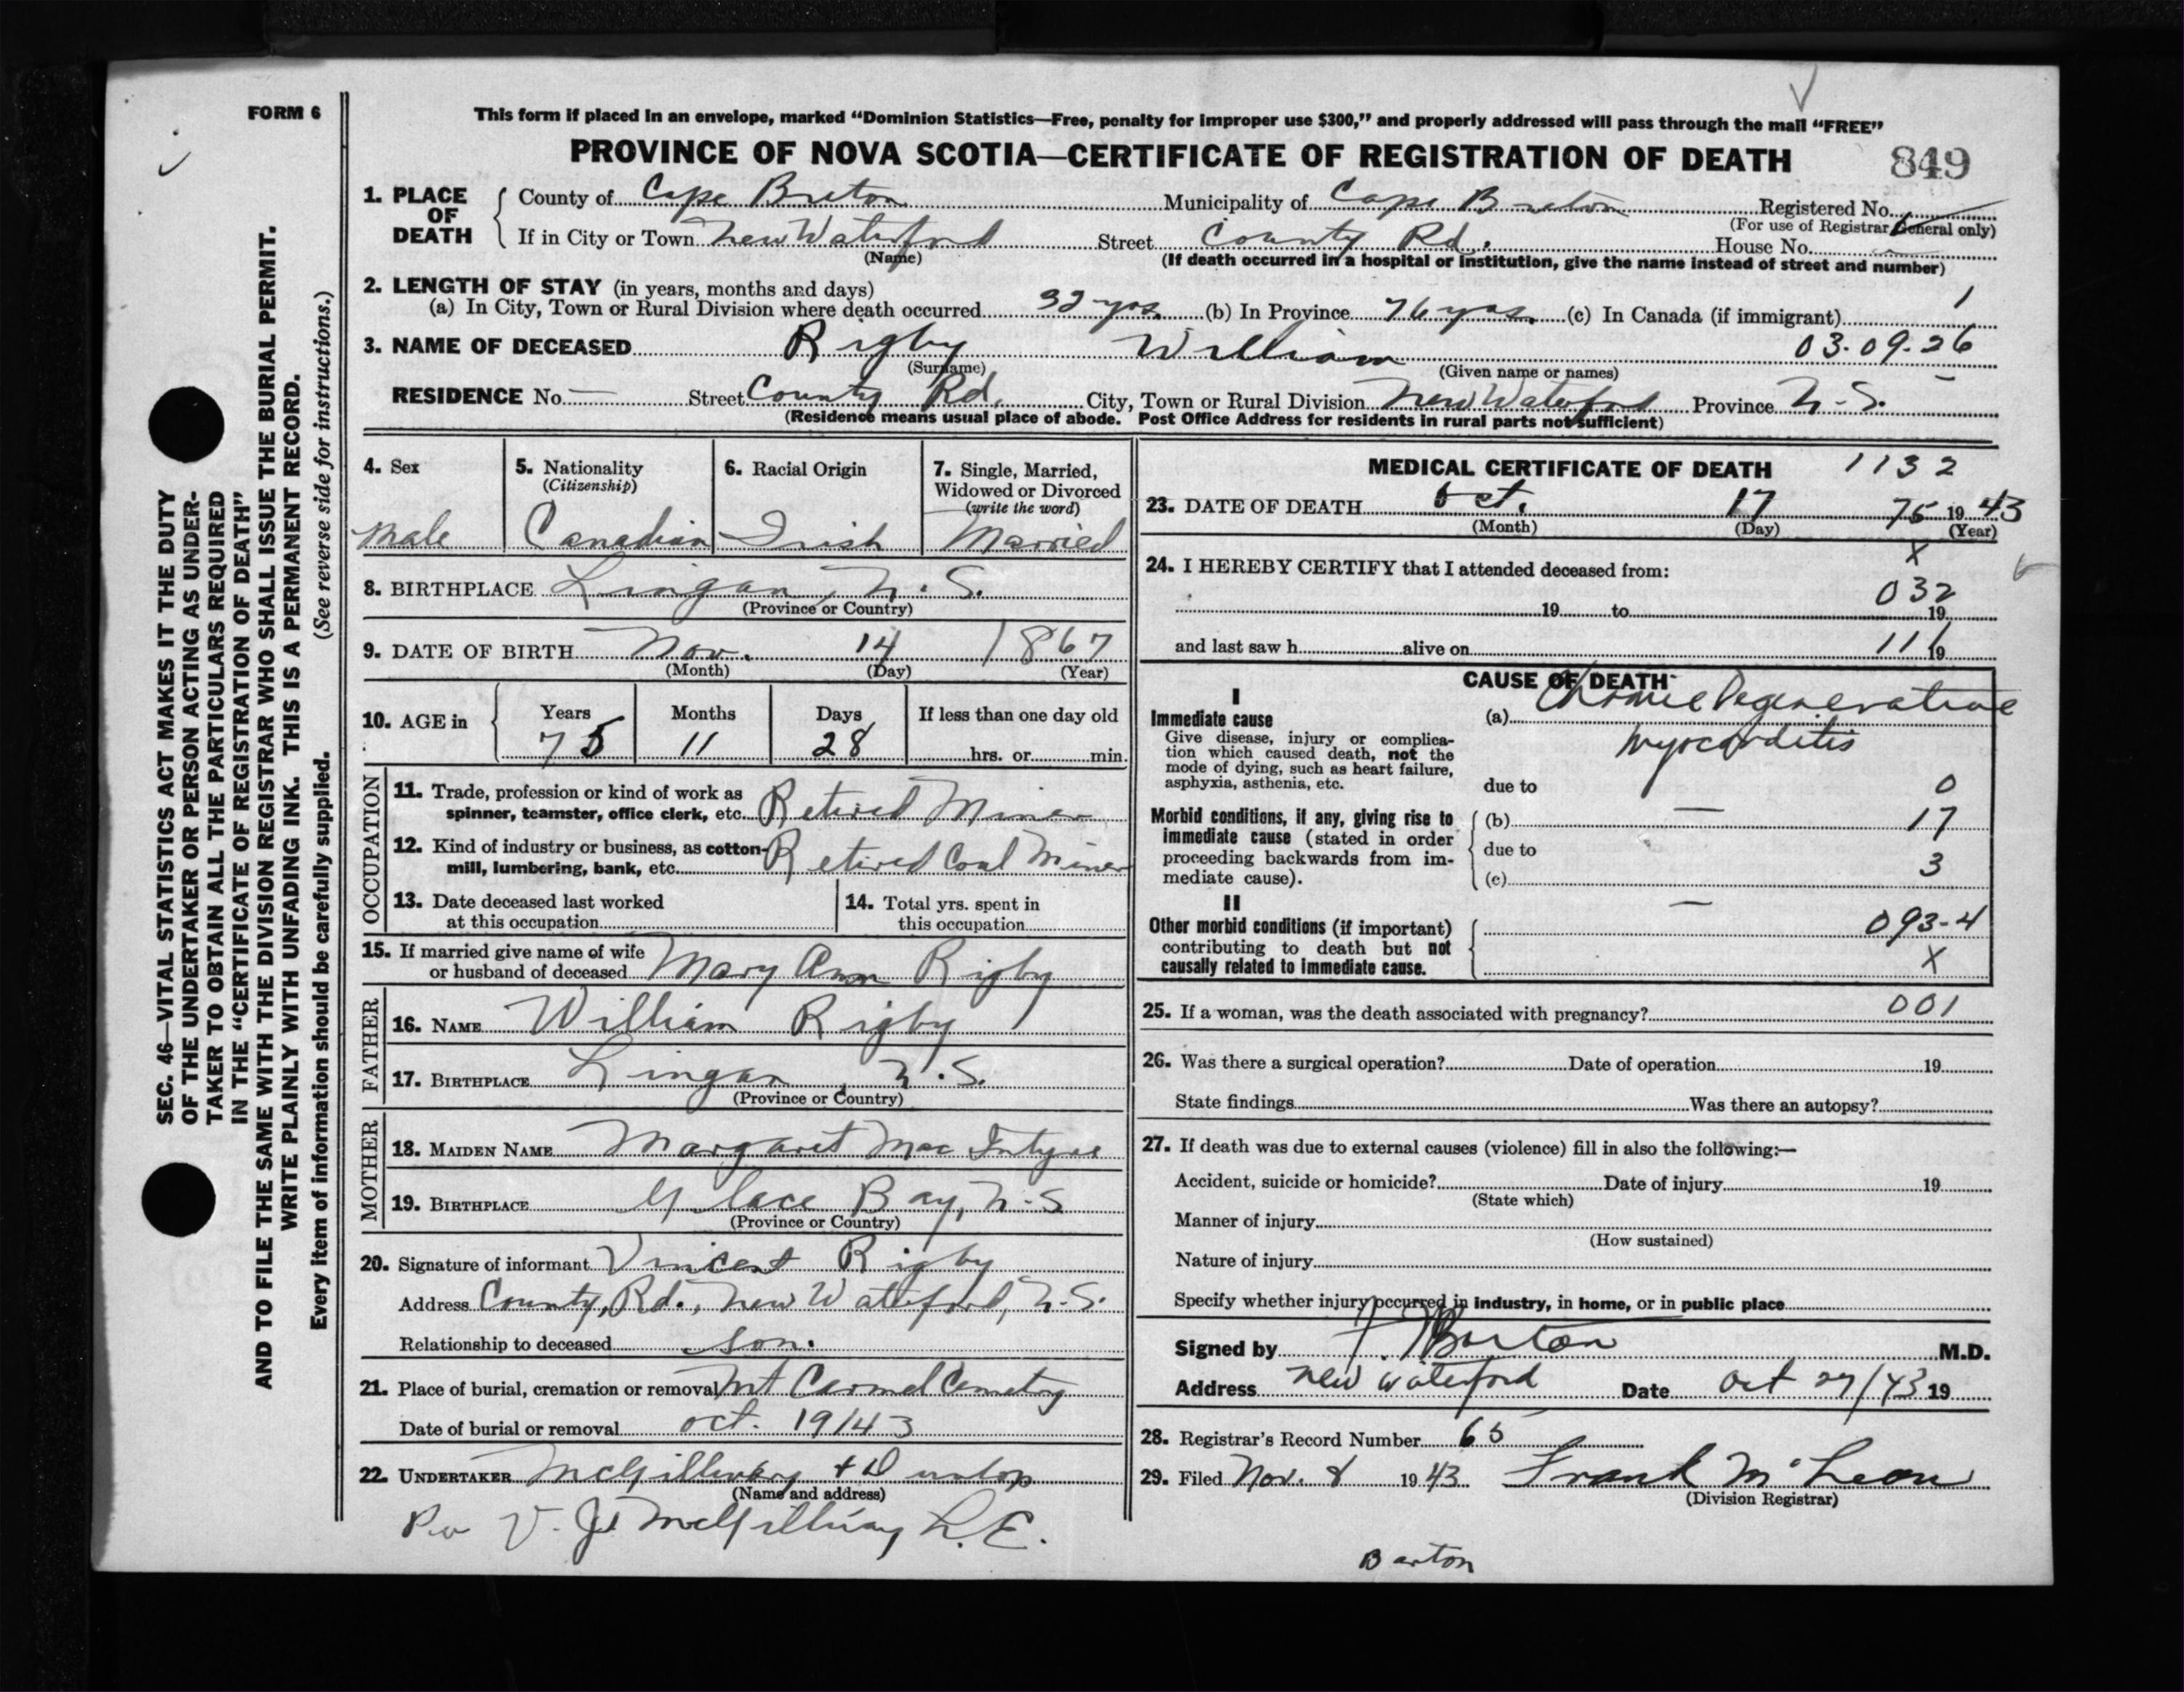 FORM 6
This form if placed in an envelope, marked "Dominion Statistics—Free, penalty for improper use $300," and properly addressed will pass through the mail "FREE"
PROVINCE OF NOVA SCOTIA—CERTIFICATE OF REGISTRATION OF DEATH 849
1. PLACE OF DEATH
County of Cape Breton Municipality of Cape Breton Registered No.
(For use of Registrar General only)
If in City or Town New Waterford Street County Rd. House No.
(Name) (If death occurred in a hospital or institution, give the name instead of street and number)
2. LENGTH OF STAY (in years, months and days)
(a) In City, Town or Rural Division where death occurred 32 yrs. (b) In Province 76 yrs. (c) In Canada (if immigrant) 1
3. NAME OF DECEASED Rigby William 03.09.26
(Surname) (Given name or names)
RESIDENCE No. — Street County Rd. City, Town or Rural Division New Waterford Province N.S.
(Residence means usual place of abode. Post Office Address for residents in rural parts not sufficient)
4. Sex
Male
5. Nationality
(Citizenship)
Canadian
6. Racial Origin
Irish
7. Single, Married,
Widowed or Divorced
(write the word)
Married
8. BIRTHPLACE Lingan, N.S.
(Province or Country)
9. DATE OF BIRTH Nov. 14 1867
(Month) (Day) (Year)
10. AGE in
Years Months Days If less than one day old
75 11 28 hrs. or min.
OCCUPATION
11. Trade, profession or kind of work as
spinner, teamster, office clerk, etc. Retired Miner
12. Kind of industry or business, as cotton-
mill, lumbering, bank, etc. Retired Coal Miner
13. Date deceased last worked
at this occupation
14. Total yrs. spent in
this occupation
15. If married give name of wife
or husband of deceased Mary Ann Rigby
FATHER
16. NAME William Rigby
17. BIRTHPLACE Lingan, N.S.
(Province or Country)
MOTHER
18. MAIDEN NAME Margaret Mac Intyre
19. BIRTHPLACE Glace Bay, N.S
(Province or Country)
20. Signature of informant Vincent Rigby
Address County, Rd., New Waterford, N.S.
Relationship to deceased son.
21. Place of burial, cremation or removal Mt Carmel Cemetery
Date of burial or removal oct. 19/43
22. UNDERTAKER McGillivray + Dunlop
(Name and address)
Per V. J. McGillivray L.E.
MEDICAL CERTIFICATE OF DEATH 1132
23. DATE OF DEATH Oct. 17 75 19 43
(Month) (Day) (Year)
X
24. I HEREBY CERTIFY that I attended deceased from:
032
19 to 19
and last saw h alive on 111 19
CAUSE OF DEATH
I
Immediate cause
Give disease, injury or complica-
tion which caused death, not the
mode of dying, such as heart failure,
asphyxia, asthenia, etc.
(a) Chronic Degenerative
Myocarditis
due to 0
Morbid conditions, if any, giving rise to
immediate cause (stated in order
proceeding backwards from im-
mediate cause).
(b) — 17
due to
(c) 3
II
Other morbid conditions (if important)
contributing to death but not
causally related to immediate cause.
—
093-4
X
25. If a woman, was the death associated with pregnancy? 001
26. Was there a surgical operation? Date of operation 19
State findings Was there an autopsy?
27. If death was due to external causes (violence) fill in also the following:—
Accident, suicide or homicide? Date of injury 19
(State which)
Manner of injury
(How sustained)
Nature of injury
Specify whether injury occurred in industry, in home, or in public place
Signed by F. Barton M.D.
Address New Waterford Date Oct 27/43 19
28. Registrar's Record Number 65
29. Filed Nov. 8 1943 Frank McLean
(Division Registrar)
Barton
SEC. 46—VITAL STATISTICS ACT MAKES IT THE DUTY
OF THE UNDERTAKER OR PERSON ACTING AS UNDER-
TAKER TO OBTAIN ALL THE PARTICULARS REQUIRED
IN THE "CERTIFICATE OF REGISTRATION OF DEATH"
AND TO FILE THE SAME WITH THE DIVISION REGISTRAR WHO SHALL ISSUE THE BURIAL PERMIT.
WRITE PLAINLY WITH UNFADING INK. THIS IS A PERMANENT RECORD.
Every item of information should be carefully supplied. (See reverse side for instructions.)